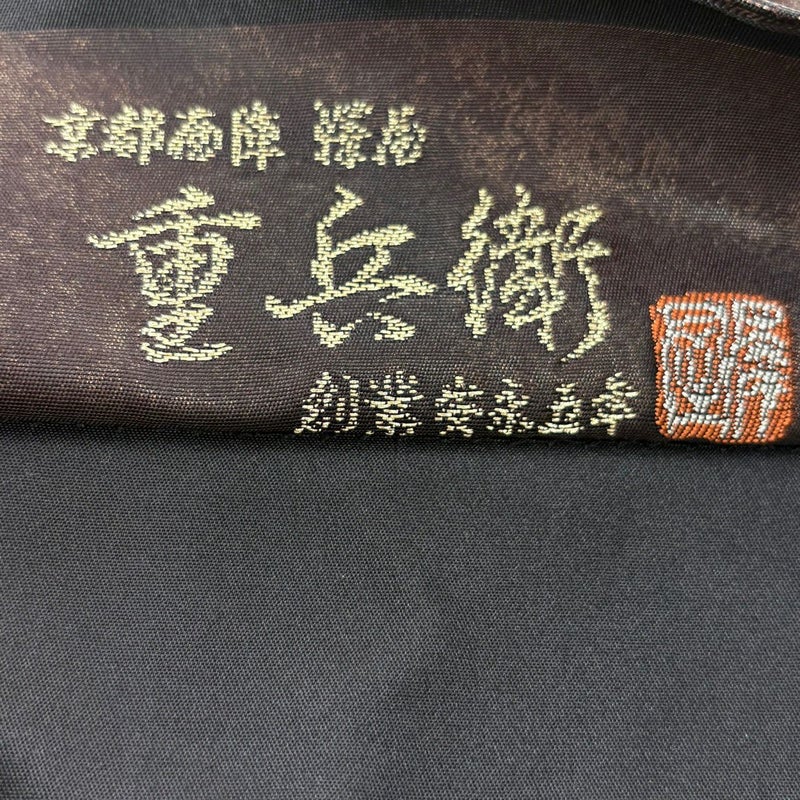 京都西陣 際高
重兵衛
創業 安永五年